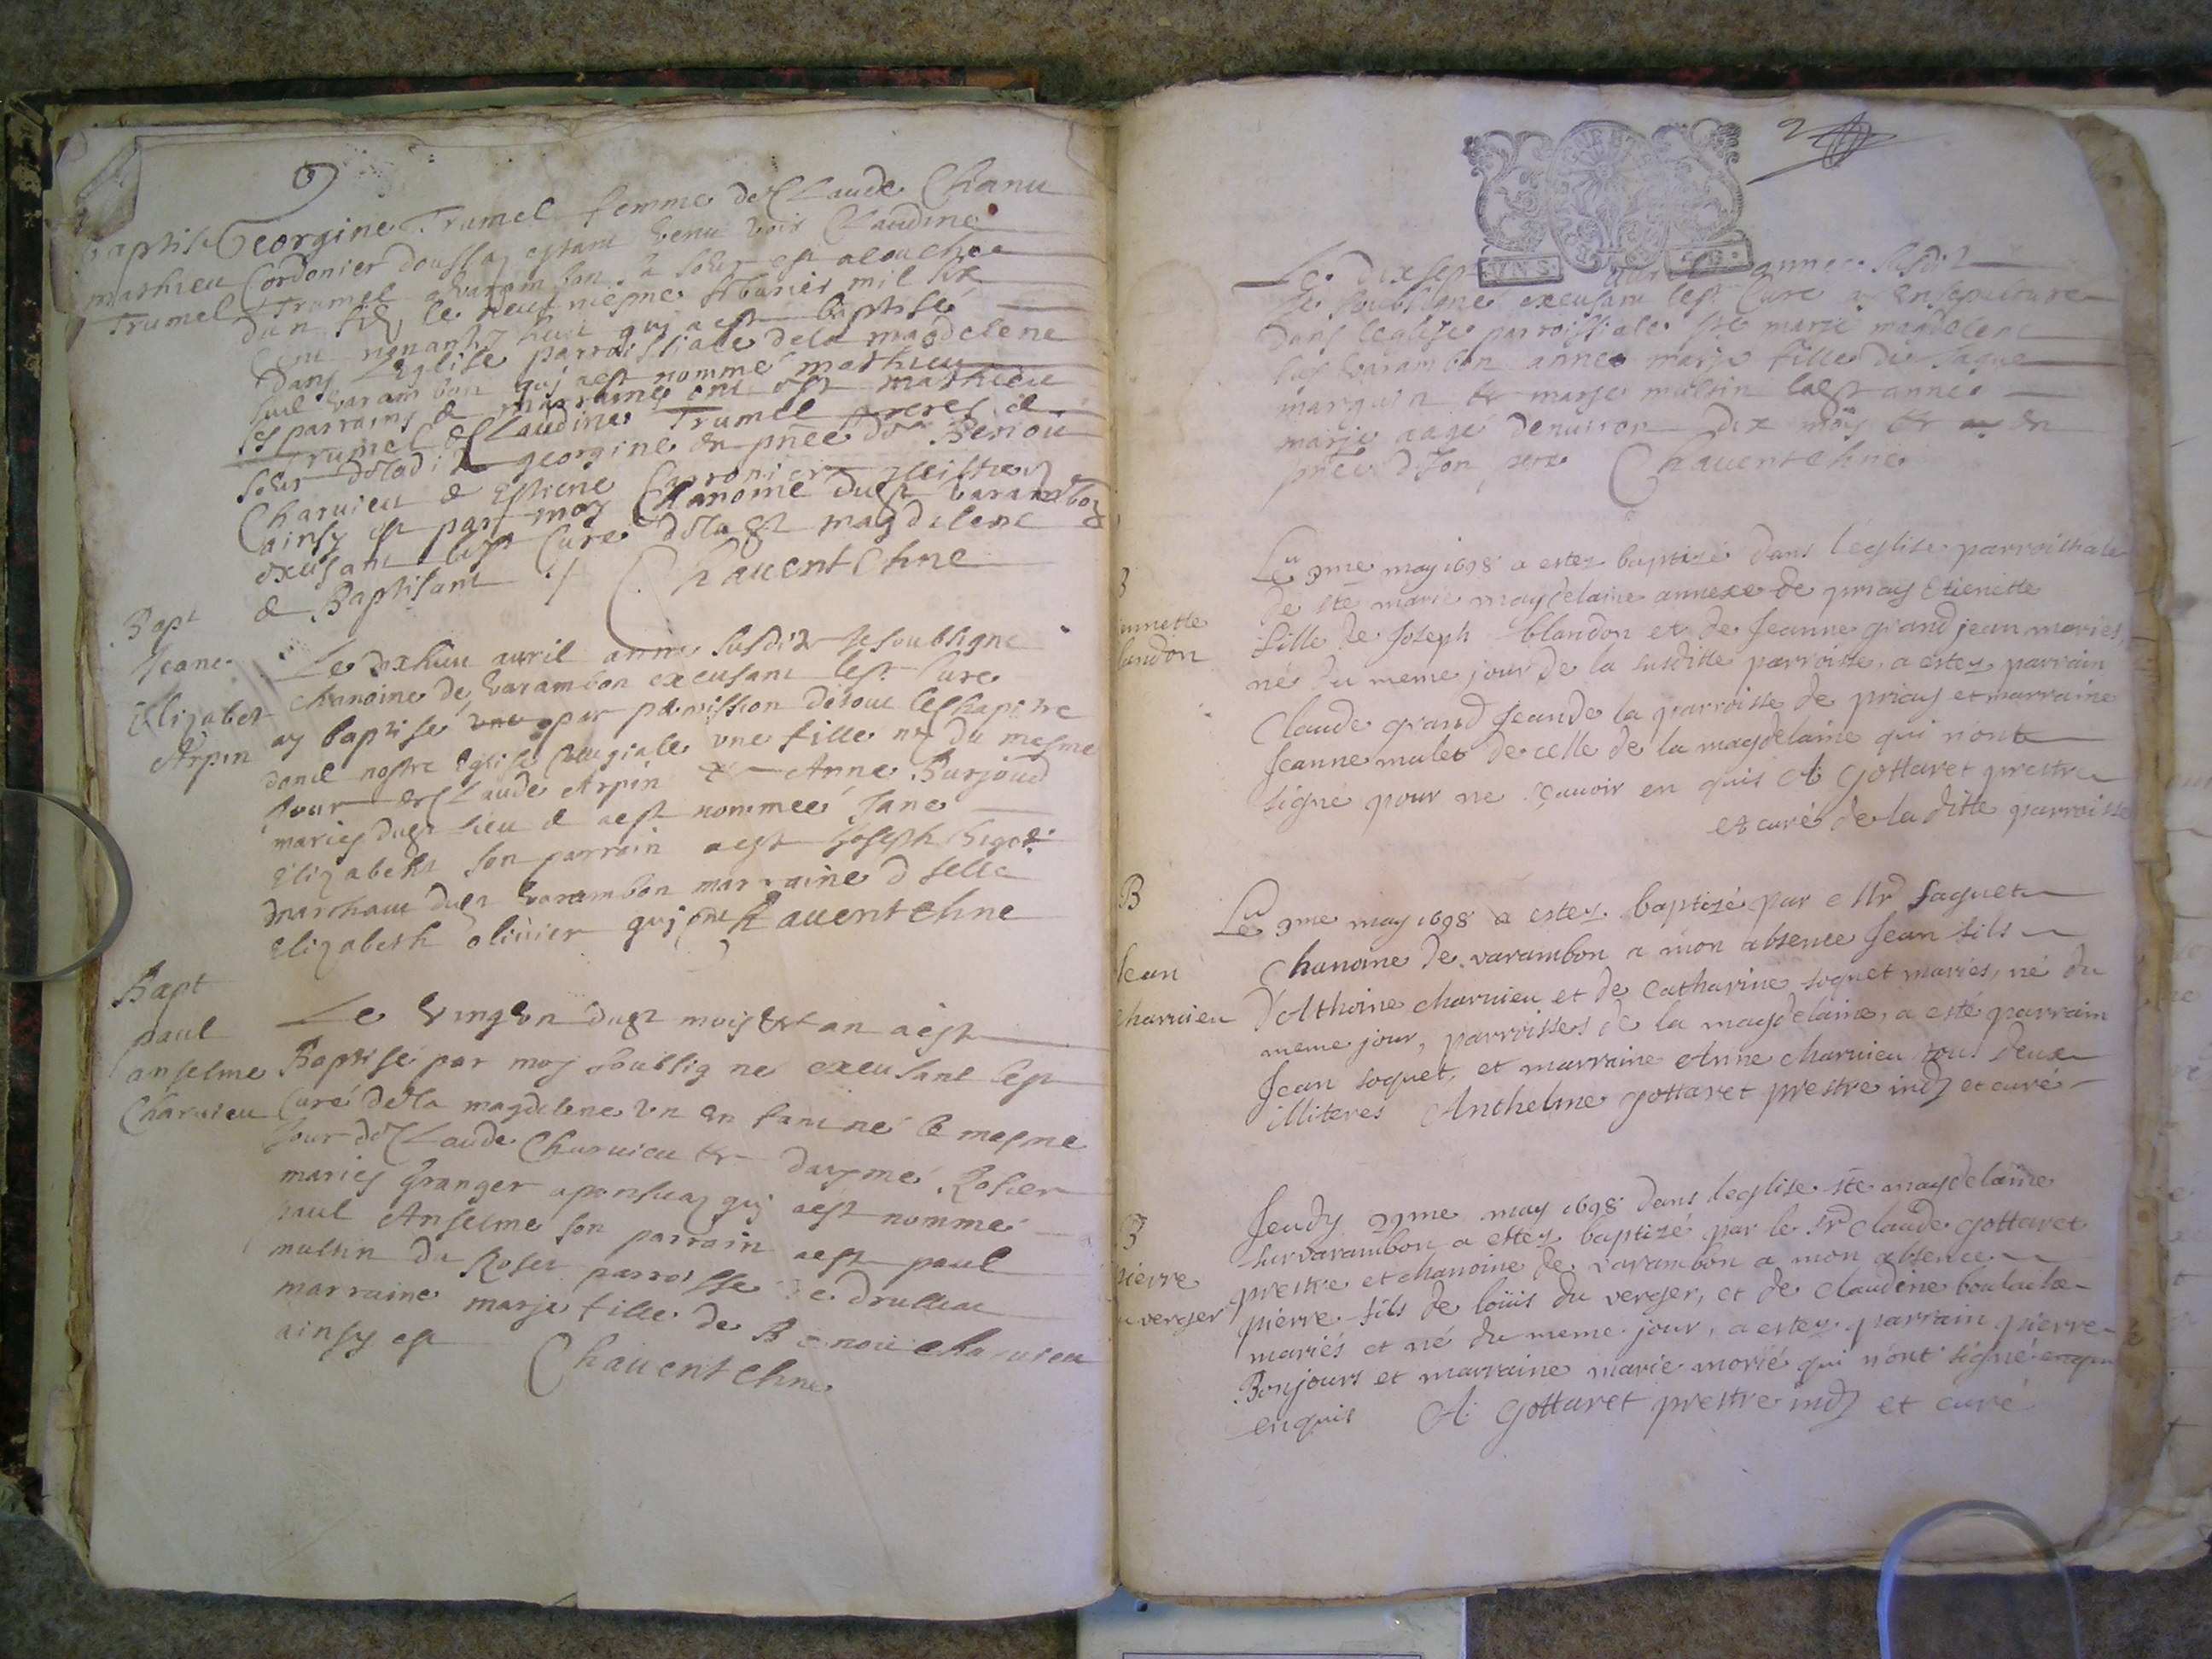 Baptist
mathieu
Trumel
Georgine Trumel femme de Claude Chanu
Cordonier doussaz estant venu voir Claudine
Trumel a varambon sa soeur est acouchee
dun fils le neufviesme febvrier mil six
cent nonante huit qui a est baptisé
dans l'Eglise parroissiale de la magdelene
sur varambon qui a est nommé mathieu
ses parrains & marraine ont est mathieu
Trumel & Claudine Trumel freres &
soeur de ladite georgine en pnce de Benoit
Charuieu & Estiene
ainsy est par moy Chanoine dudt varambon
excusant ledt Curé de la dt magdelene
& Baptisant ./. Chavent Chne
Bapt
Jeane
Elizabet
Arpin
Le dixhuit avril année susdite Je soubsigne
Chanoine de varambon excusant ledt Curé
ay baptisé par permission de tout le Chapitre
dans nostre Eglise Collegiale une fille né du mesme
Jour de Claude Arpin & Anne Burjoud
mariés dudt lieu & a est nommeé Jane
Elizabeth son parrain a est Joseph
marchant dudt varambon marraine dselle
Elizabeth olivier qui ont Chavent Chne
Bapt
paul
anselme
Charuieu
Le vingt un dudt mois & an a est
Baptisé par moy soubsigné excusant ledt
Curé de la magdelene un enfant né le mesme
Jour de Claude Charuieu & daymé Rosier
mariés Granger a qui a est nommé
paul Anselme son parrain a est paul
multin du Roset parroisse de druillat
marraine marie fille de Benoit Charuieu
ainsy est Chavent Chne
2
VN S.
Le dixsept avril année susdit
Je soubsigné excusant ledt Curé ay ensepulturé
dans leglise parroissiale Ste marie magdelene
sus varambon anne marie fille de Jaque
marguin & marie multin ladt anne
marie aagé denviron dix mois & en
pnce de son pere Chavent Chne
B
landon
Le 9me may 1698 a estez baptizé dans l'église parroissiale
de Ste marie magdelaine annexe de priay Etienette
fille de Joseph blandon et de Jeanne grand jean mariés,
né du meme jour de la susditte parroisse, a estez parrain
Claude grand Jean de la parroisse de priay et marraine
Jeanne mulet de celle de la magdelaine qui n'ont
signé pour ne sçavoir en quis A Gottaret prestre
et curé de la ditte parroisse
B
Jean
Charuieu
Le 9me may 1698 a estez baptizé par Mr Jaquet
Chanoine de varambon a mon absence Jean fils
d'Athoine charuieu et de Catharine soquet mariés, né du
meme jour, parroissets de la magdelaine, a esté parrain
Jean soquet, et marraine Anne charuieu tous deux
illiteres Anthelme gottaret prestre indy et curé
B
pierre
du verger
Jeudy 29me may 1698 dans leglise ste magdelaine
sur varambon a estez baptizé par le Sr Claude gottaret
prestre et chanoine de varambon a mon absence
pierre fils de loüis du verger, et de Claudine
mariés et né du meme jour, a estez parrain pierre
Bonjours et marraine marie morié qui n'ont signé
enquis A Gottaret prestre indy et curé